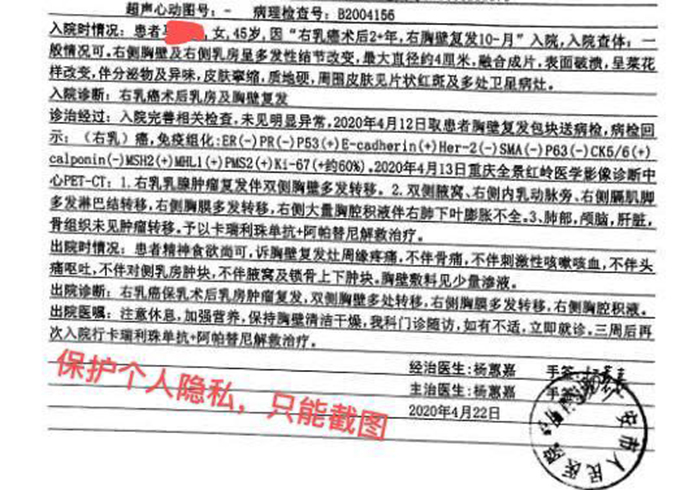 超声心动图号: - 病理检查号: B2004156
入院时情况: 患者 , 女, 45岁, 因“右乳癌术后2+年, 右胸壁复发10-月”入院, 入院查体: 一
般情况可. 右侧胸壁及右侧乳房呈多发性结节改变, 最大直径约4厘米, 融合成片, 表面破溃, 呈菜花
样改变, 伴分泌物及异味, 皮肤挛缩, 质地硬, 周围皮肤见片状红斑及多处卫星病灶.
入院诊断: 右乳癌术后乳房及胸壁复发
诊治经过: 入院完善相关检查, 未见明显异常. 2020年4月12日取患者胸壁复发包块送病检, 病检回
示: (右乳)癌, 免疫组化:ER(-)PR(-)P53(+)E-cadherin(+)Her-2(-)SMA(-)P63(-)CK5/6(+)
calponin(-)MSH2(+)MHL1(+)PMS2(+)Ki-67(+约60%). 2020年4月13日重庆全景红岭医学影像诊断中
心PET-CT: 1. 右乳乳腺肿瘤复发伴双侧胸壁多发转移. 2. 双侧腋窝、右侧内乳动脉旁、右侧膈肌脚
多发淋巴结转移, 右侧胸膜多发转移, 右侧大量胸腔积液伴右肺下叶膨胀不全. 3、肺部, 颅脑, 肝脏,
骨组织未见肿瘤转移. 予以卡瑞利珠单抗+阿帕替尼解救治疗.
出院时情况: 患者精神食欲尚可, 诉胸壁复发处周缘疼痛, 不伴骨痛, 不伴刺激性咳嗽咳血, 不伴头
痛呕吐, 不伴对侧乳房肿块, 不伴腋窝及锁骨上下肿块. 胸壁敷料见少量渗液.
出院诊断: 右乳癌保乳术后乳房肿瘤复发, 双侧胸壁多处转移, 右侧胸膜多发转移, 右侧胸腔积液.
出院医嘱: 注意休息, 加强营养, 保持胸壁清洁干燥, 我科门诊随访, 如有不适, 立即就诊, 三周后再
次入院行卡瑞利珠单抗+阿帕替尼解救治疗.
经治医生: 杨蕙嘉 手签:
主治医生: 杨蕙嘉 手签
2020年4月22日
安市人民医院
保护个人隐私, 只能截图